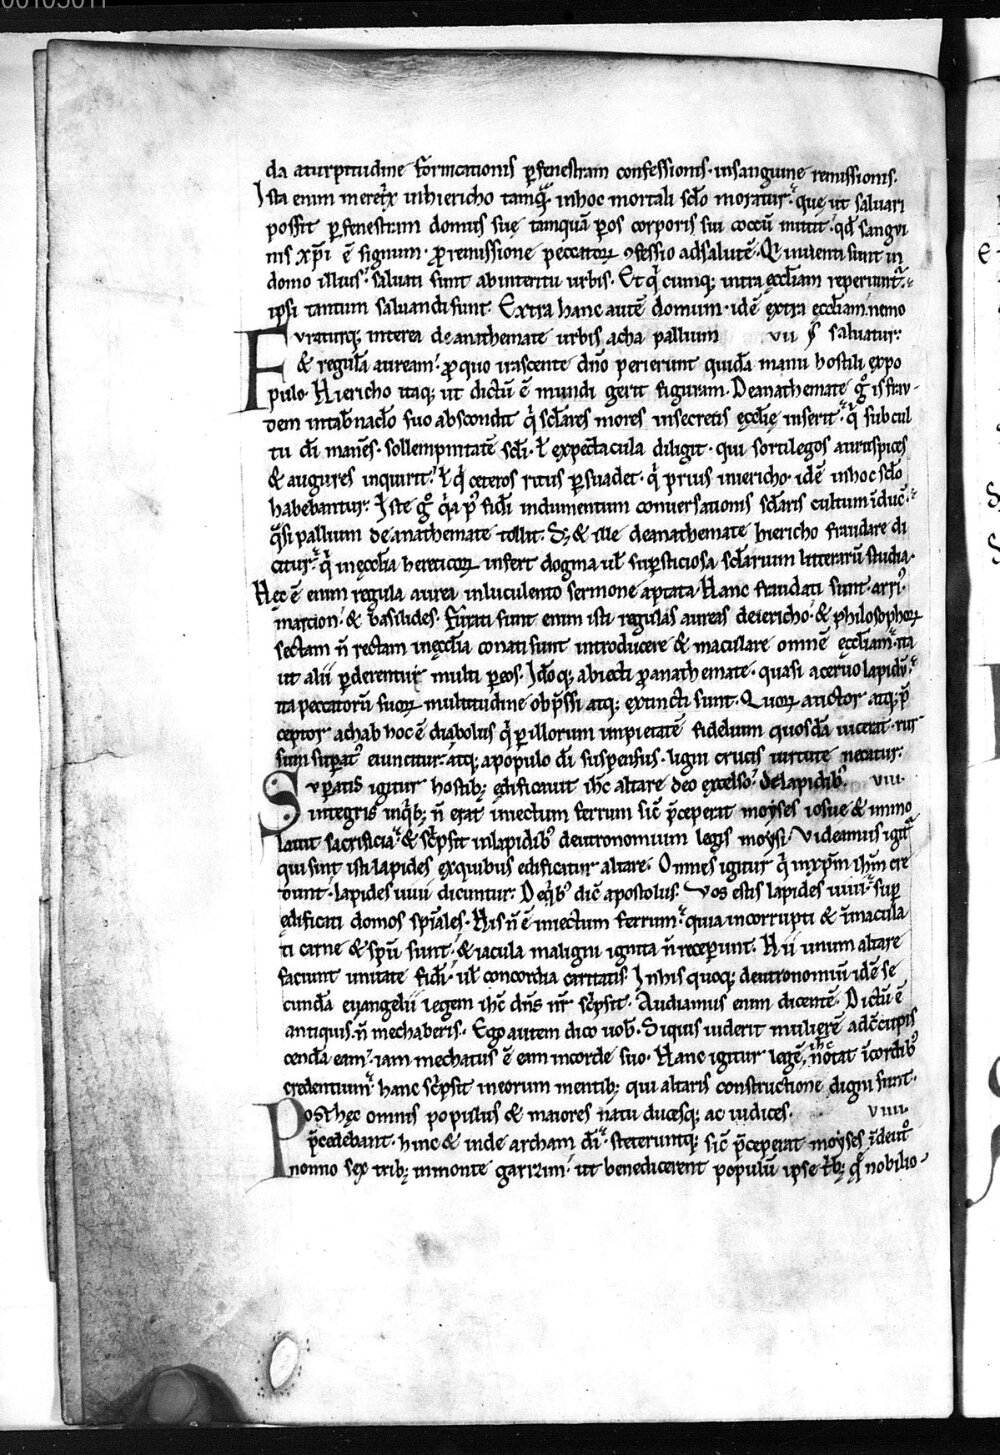 da aturpitudine fornicationis ꝑfenestram confessionis· insanguine remissionis.
Ista enim meret͛x inhiericho tamq̃· inhoc mortali sc̅lo moratur· quę ut saluari
possit ꝑfenestram domus suę tamquā ꝑos corporis sui coccū mittit· qd̅ sangui
nis xp̅i ē signum· ꝓremissione peccatoꝝ ꝯfessio adsalutē· Q͛ inuenti sunt in
domo illius· saluati sunt abinteritu urbis· Et q͛cumq; intra ęccl̅iam reperiunt᷑·
ipsi tantum saluandi sunt· Extra hanc autē domum· idē extra ęccl̅iam nemo
Furaturq; interea de anathemate urbis acha pallium vii saluatur·
& regulā auream· ꝓquo irascente dn̅o perierunt quidā manu hostili expo
pulo· Hiericho itaq; ut dictū ē mundi gerit figuram· Deanathemate gͦ is frau
dem intab̅naclo̅ suo abscondit q͛ scl̅ares mores insecretis ęccl̅ię inserit· q͛ sub cul
tu di̅ manēs· sollempnitatē scl̅i· ł expectacula diligit· qui sortilegos aurispices
& augures inquirit· ł q͛ ceteros ritus ꝑsuadet· q͛ prius iniericho· idē inhoc scl̅o
habebantur· Iste gͦ q͛a pꝰ fidi̅ indumentum conuersationis scl̅aris cultum īduc̅·
q̃si pallium deanathemate tollit· S; & ille deanathemate hiericho fraudare di
citur· q͛ inęccl̅ia hereticoꝝ insert dogma ul̅ suꝑsticiosa scl̅arum litterarū studia·
Hęc ē enim regula aurea inluculento sermone aptata· Hanc fraudati sunt· arriꝰ
marcion· & basilides· Furati sunt enim isti regulas aureas deiericho· & philosophoꝝ
sectam n̅ rectam inęccl̅ia conati sunt introducere & maculare omnē ęccl̅iam· ita
ut alii ꝑderentur multi ꝑeos· Idͦq; abiecti ꝓanathemate· quasi aceruo lapidū·
ita peccatorū suoꝝ multitudine obp̅ssi atq; extincti sunt· Quoꝝ auctor atq; p̅
ceptor achab hoc ē diabolus q͛ ꝑillorum impietatē fidelium quosdā uicerat· rur
sum suꝑatꝰ euincitur· atq; apopulo di̅ suspensus· ligni crucis uirtute necatur·
Suꝑatis igitur hostib; ędificauit ih̅c altare deo excelso· delapidibꝰ viii·
integris inq͛b; n̅ erat iniectum ferrum sic̅ p̅ceperat moyses iosue & immo
lauit sacrificia· & sc͛psit inlapidibꝰ deutronomium legis moysi· Videamus igit᷑
qui sint isti lapides exquibus edificatur altare· Omnes igitur q͛ inxp̅m ih̅m cre
dunt· lapides uiui dicuntur· Deq͛bꝰ dic̅ apostolus· Vos estis lapides uiui· suꝑ
ędificati domos spi̅ales· His n̅ ē iniectum ferrum· quia incorrupti & īmacula
ti carne & spū sunt· & iacula maligni ignita n̅ receperunt· Hii unum altare
faciunt unitate fidi̅· ul̅ concordia caritatis· Inhis quoq; deutronomiū idē se
cundā euangelii legem ih̅c dn̅s nr̅ sc͛psit· Audiamus enim dicentē· Dictū ē
antiquis· n̅ mechaberis· Ego autem dico uob̅· Siquis uiderit mulierē adc̅cupis
cendā eam· iam mechatus ē eam incorde suo· Hanc igitur legē ih̅c notat īcordibꝰ
credentium· hanc sc͛psit ineorum mentib; qui altaris constructione digni sunt·
Post hęc omnis populus & maiores natu ducesq; ac iudices· viiii·
p̅cedebant· hinc & inde archam di̅· steteruntq; sic̅ p̅ceperat moyses īdeut͛o
nomio sex trib; inmonte garizim· ut benedicerent populū ipse trib; q͛ nobilio